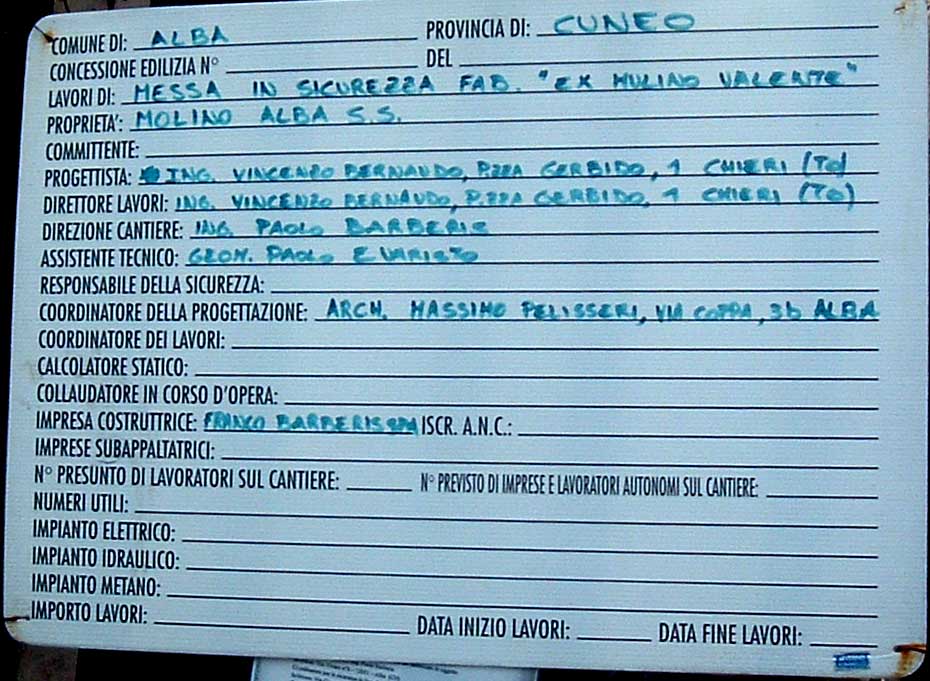 COMUNE DI: ALBA PROVINCIA DI: CUNEO
CONCESSIONE EDILIZIA N° DEL
LAVORI DI: MESSA IN SICUREZZA FAB. "EX MULINO VALENTE"
PROPRIETA': MOLINO ALBA S.S.
COMMITTENTE:
PROGETTISTA: ING. VINCENZO BERNAUDO, P.ZZA GERBIDO, 1 CHIERI (TO)
DIRETTORE LAVORI: ING. VINCENZO BERNAUDO, P.ZZA GERBIDO, 1 CHIERI (TO)
DIREZIONE CANTIERE: ING. PAOLO BARBERIS
ASSISTENTE TECNICO: GEOM. PAOLO EVARISTO
RESPONSABILE DELLA SICUREZZA:
COORDINATORE DELLA PROGETTAZIONE: ARCH. MASSIMO PELISSERI, VIA COPPA, 3b ALBA
COORDINATORE DEI LAVORI:
CALCOLATORE STATICO:
COLLAUDATORE IN CORSO D'OPERA:
IMPRESA COSTRUTTRICE: FRANCO BARBERIS SPA ISCR. A.N.C.:
IMPRESE SUBAPPALTATRICI:
N° PRESUNTO DI LAVORATORI SUL CANTIERE: N° PREVISTO DI IMPRESE E LAVORATORI AUTONOMI SUL CANTIERE:
NUMERI UTILI:
IMPIANTO ELETTRICO:
IMPIANTO IDRAULICO:
IMPIANTO METANO:
IMPORTO LAVORI: DATA INIZIO LAVORI: DATA FINE LAVORI: